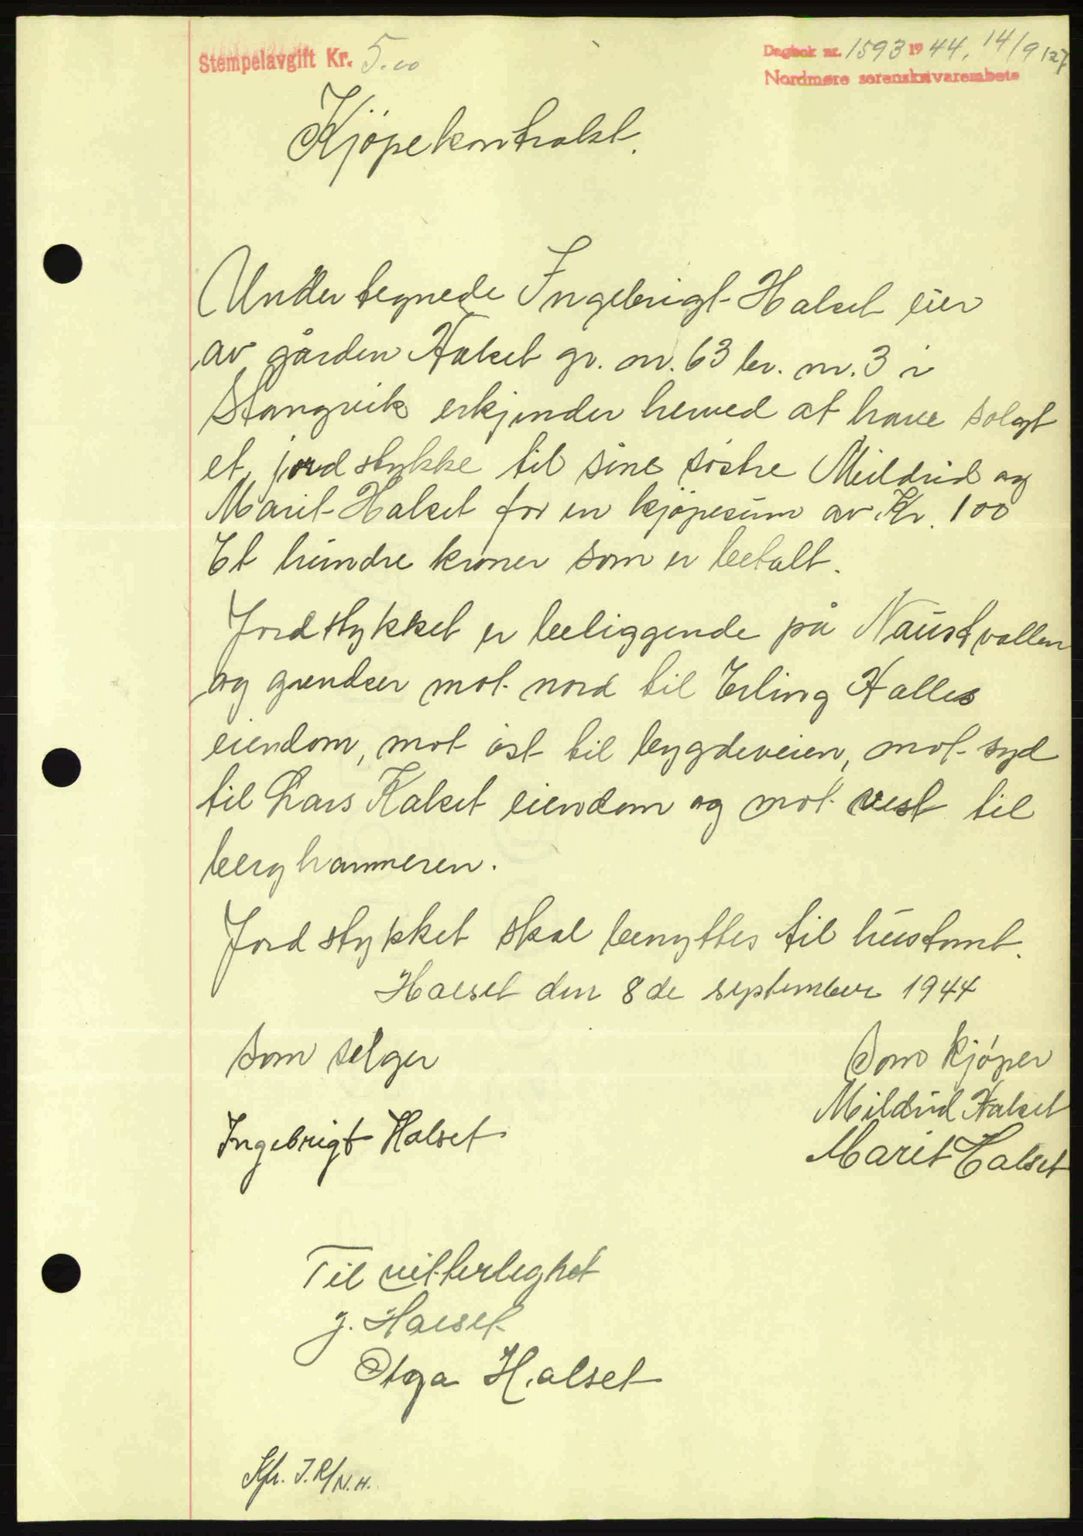 Stempelavgift Kr. 5.00
Dagbok nr. 1593 19 44, 14/9 127
Nordmøre sorenskrivarembete
Kjöpekontrakt.
Undertegnede Ingebrigt Halset eier
av gården Halset gr. nr. 63 br. nr. 3 i
Stangvik erkjender herved at have solgt
et jordstykke til sine søstre Mildrid og
Marit Halset for en kjøpesum av Kr. 100
Et hundre kroner som er betalt.
Jordstykket er beliggende på Naustvollen
og grendser mot nord til Erling Halles
eiendom, mot øst til bygdeveien, mot syd
til Lars Halset eiendom og mot vest til
berghammeren.
Jordstykket skal benyttes til hustomt.
Halset den 8de september 1944
Som selger
Som kjøper
Mildrid Halset
Ingebrigt Halset
Marit Halset
Til vitterlighet
J. Halset
Olga Halset